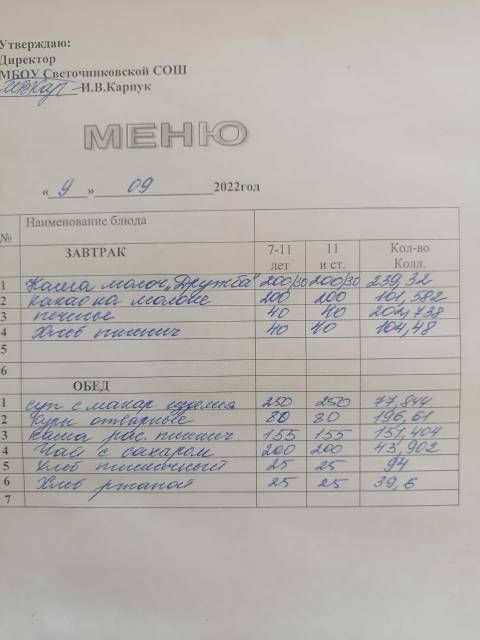 Утверждаю:
Директор
МБОУ Светочниковской СОШ
И.В.Карпук
МЕНЮ
«9» 09 2022год
№ Наименование блюда
ЗАВТРАК 7-11 лет 11 и ст. Кол-во Колл.
1 Каша молоч. „Дружба" 200/30 200/30 239,32
2 Какао на молоке 200 200 101,582
3 печенье 40 40 202,738
4 Хлеб пшенич 40 40 104,48
5
6
ОБЕД
1 суп с макар изделия 250 250 77,844
2 Куры отварные 80 80 196,61
3 каша рас. пшенич 155 155 151,404
4 Чай с сахаром 200 200 43,902
5 Хлеб пшеничный 25 25 94
6 Хлеб ржаной 25 25 39,6
7